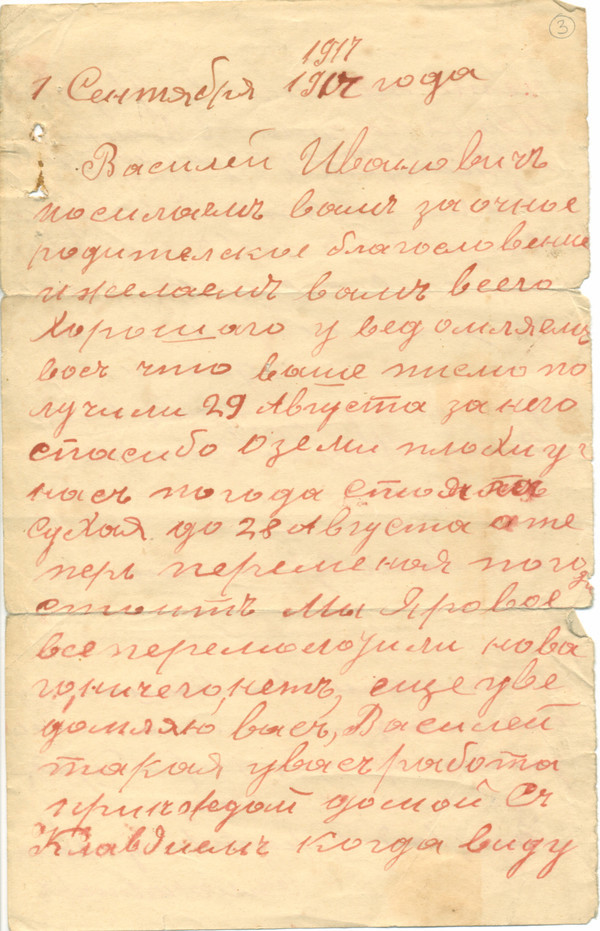 3
1917
1 Сентября 1917 года
Василей Ивановичъ
посилаемъ вамъ заочное
родителское благословение
и желаемъ вамъ всего
Хорошаго уведомляемъ
васъ что ваше писмо по
лучили 29 Августа за него
спасибо Оземи плохи у
насъ погода стоя
сухая до 28 Августа а те
перь переменая пого
стоитъ Мы Яровое
все перемолотили нова
го ничего нетъ, еще уве
домляю васъ, Василей
такая у васъ работа
домой Съ
Клавдиемъ когда виду